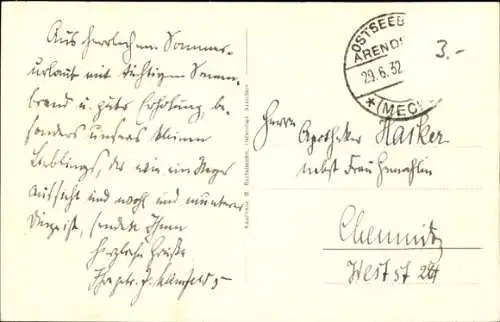 Aus herrlichem Sommer-
urlaub mit tüchtigem Sonnen-
brand u. guter Erholung, be-
sonders unseres kleinen
Lieblings, der wie ein Neger
aussieht und wohl und munterer
Dinge ist, senden Ihnen
herzliche Grüße
OSTSEEB
ARENDS
29.6.32
(MEC
3.-
Herrn
Apotheker Hasker
nebst Frau Gemahlin
Chemnitz
West st 24